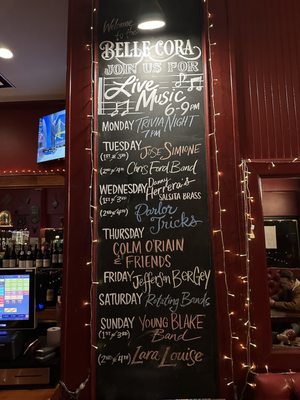 Welcome to the
BELLE CORA
JOIN US FOR
Live
Music
6-9 PM
MONDAY TRIVIA NIGHT
7PM
TUESDAY JOSE SIMIONE
(1st & 3rd)
(2nd & 4th) Chris Ford Band
WEDNESDAY Danny
(1st & 3rd) Herrera's
SALSITA BRASS
(2nd & 4th) Parlor
Tricks
THURSDAY
COLM O'RIAIN
& FRIENDS
FRIDAY Jefferson BERGEY
SATURDAY Rotating Bands
SUNDAY YOUNG BLAKE
(1st & 3rd) Band
(2nd & 4th) Lara Louise